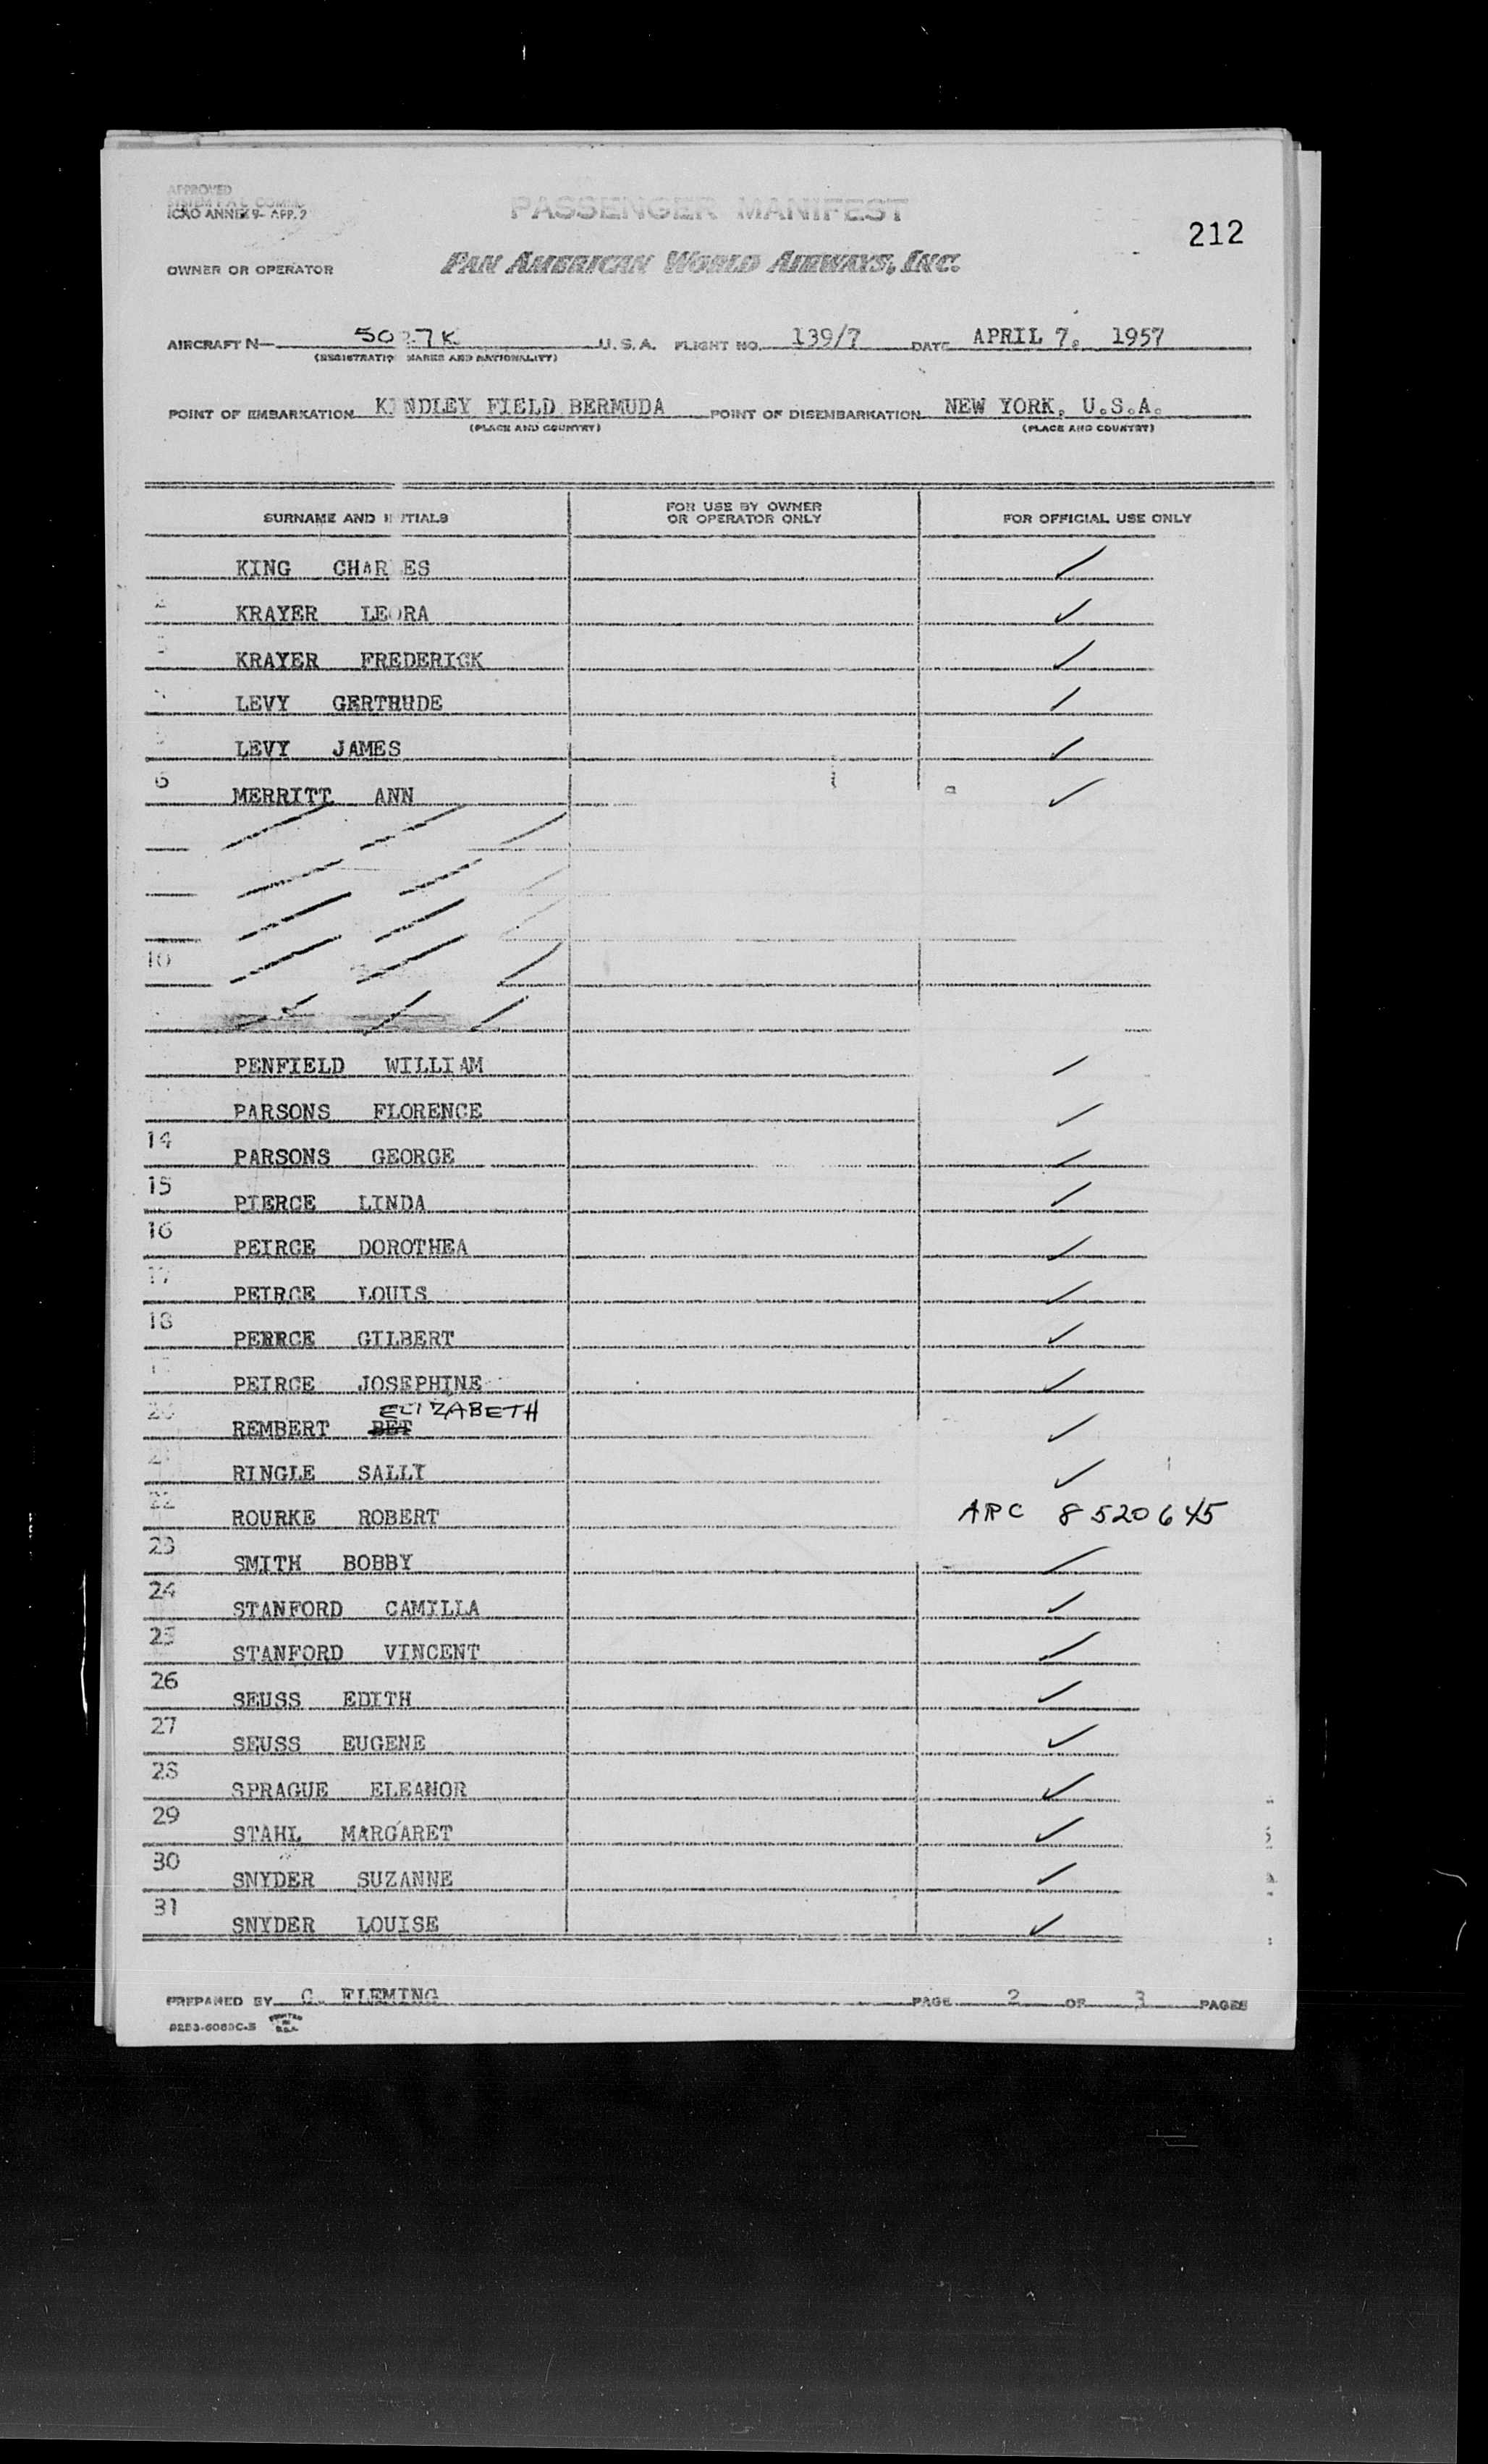 APPROVED
ICAO ANNEX 9- APP. 2
PASSENGER MANIFEST
212
OWNER OR OPERATOR PAN AMERICAN WORLD AIRWAYS, INC.
AIRCRAFT N— 50 7K U.S.A. FLIGHT NO. 139/7 DATE APRIL 7, 1957
(REGISTRATIO MARKS AND NATIONALITY)
POINT OF EMBARKATION K NDLEY FIELD BERMUDA POINT OF DISEMBARKATION NEW YORK, U.S.A.
(PLACE AND COUNTRY) (PLACE AND COUNTRY)
SURNAME AND INITIALS FOR USE BY OWNER OR OPERATOR ONLY FOR OFFICIAL USE ONLY
KING CHAR ES ✓
2 KRAYER LEORA ✓
KRAYER FREDERICK ✓
LEVY GERTRUDE ✓
LEVY JAMES ✓
6 MERRITT ANN ✓
10
PENFIELD WILLIAM ✓
PARSONS FLORENCE ✓
14 PARSONS GEORGE ✓
15 PIERCE LINDA ✓
16 PEIRCE DOROTHEA ✓
17 PEIRCE LOUIS ✓
18 PERRCE GILBERT ✓
PEIRCE JOSEPHINE ✓
ELIZABETH
20 REMBERT BET ✓
RINGLE SALLY ✓
22 ROURKE ROBERT ARC 8520645
23 SMITH BOBBY ✓
24 STANFORD CAMILLA ✓
25 STANFORD VINCENT ✓
26 SEUSS EDITH ✓
27 SEUSS EUGENE ✓
28 SPRAGUE ELEANOR ✓
29 STAHL MARGARET ✓
30 SNYDER SUZANNE ✓
31 SNYDER LOUISE ✓
PREPARED BY C. FLEMING PAGE 2 OF 3 PAGES
PRINTED IN U.S.A.